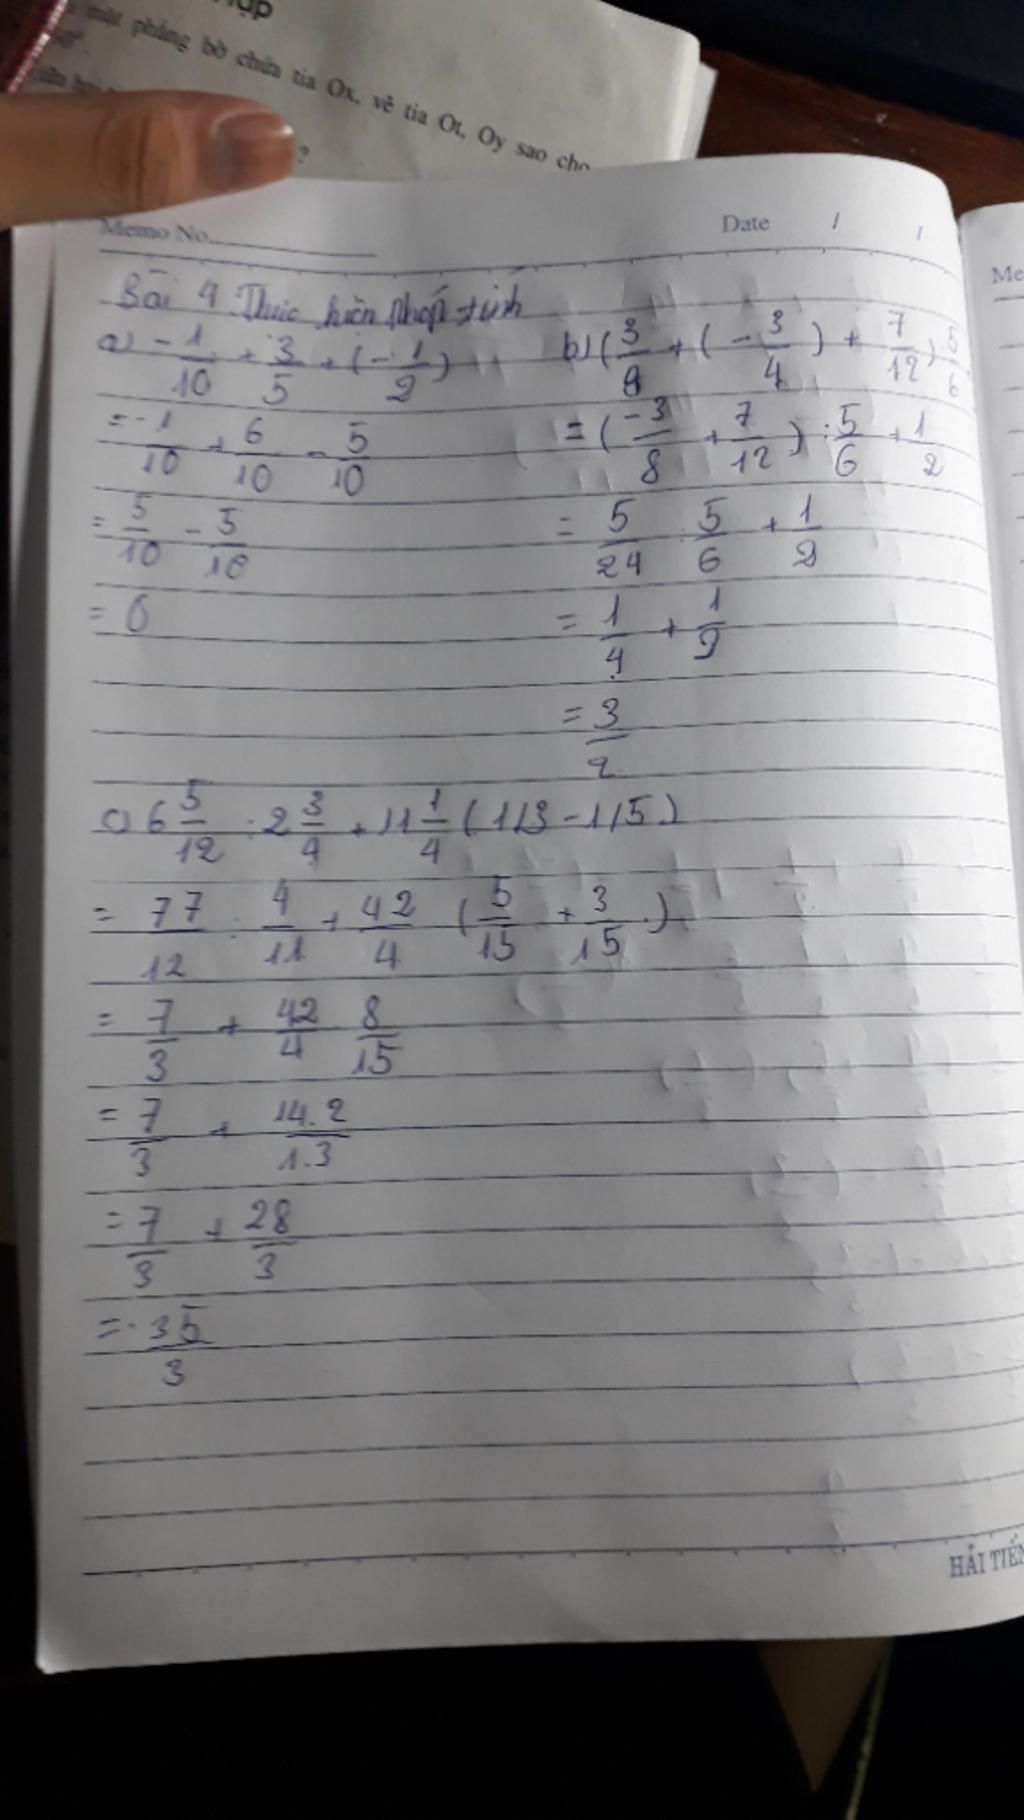 mặt phẳng bờ chứa tia Ox, vẽ tia Ot, Oy sao cho
?
Memo No.
Date / /
Bài 4 Thực hiện phép tính
a) -1/10 + 3/5 + (-1/2)
= -1/10 + 6/10 - 5/10
= 5/10 - 5/10
= 0
b) (3/8 + (-3/4) + 7/12) : 5/6
= (-3/8 + 7/12) : 5/6 + 1/2
= 5/24 : 5/6 + 1/2
= 1/4 + 1/2
= 3/4
c) 6 5/12 : 2 3/4 + 11 1/4 (1/3 - 1/5)
= 77/12 . 4/11 + 42/4 (5/15 + 3/15)
= 7/3 + 42/4 8/15
= 7/3 + 14.2/1.3
= 7/3 + 28/3
= 35/3
HẢI TIẾN